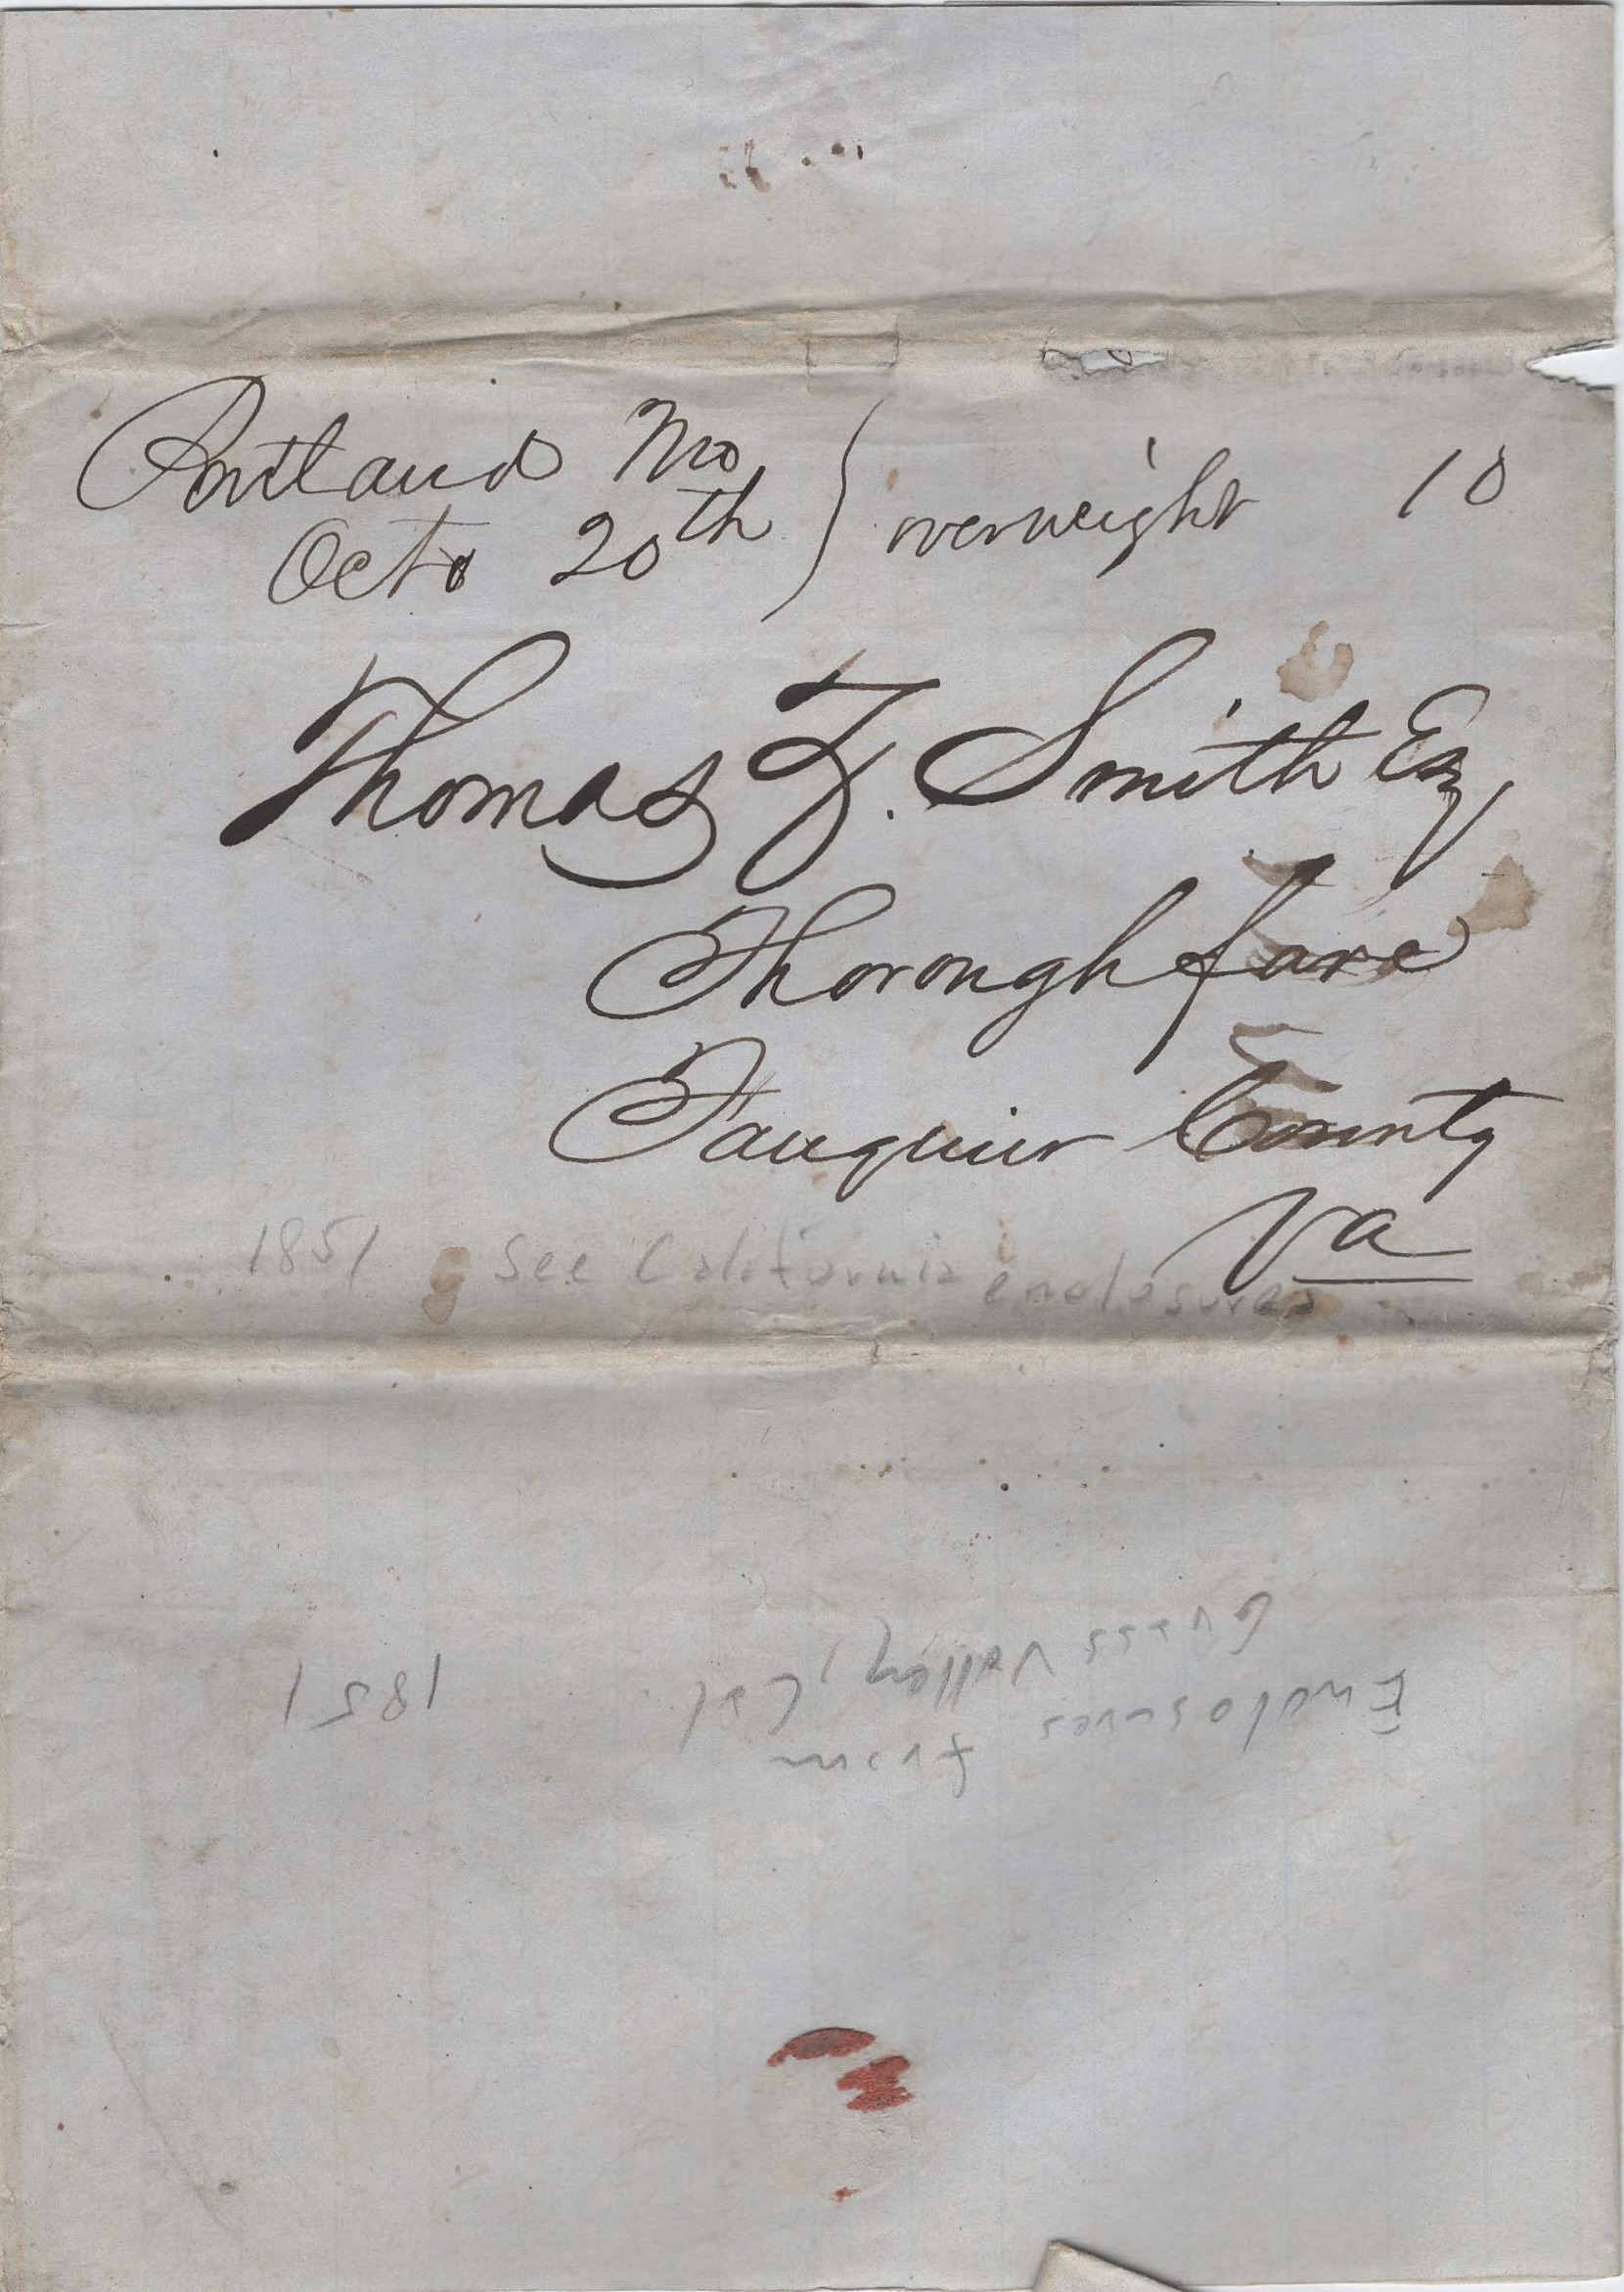 Portland Mo
Octo 20th } overweight 10
Thomas F. Smith Esq
Thoroughfare
Fauquier County
Va
1851 See California enclosures
Enclosures from
Grass Valley, Cal. 1851